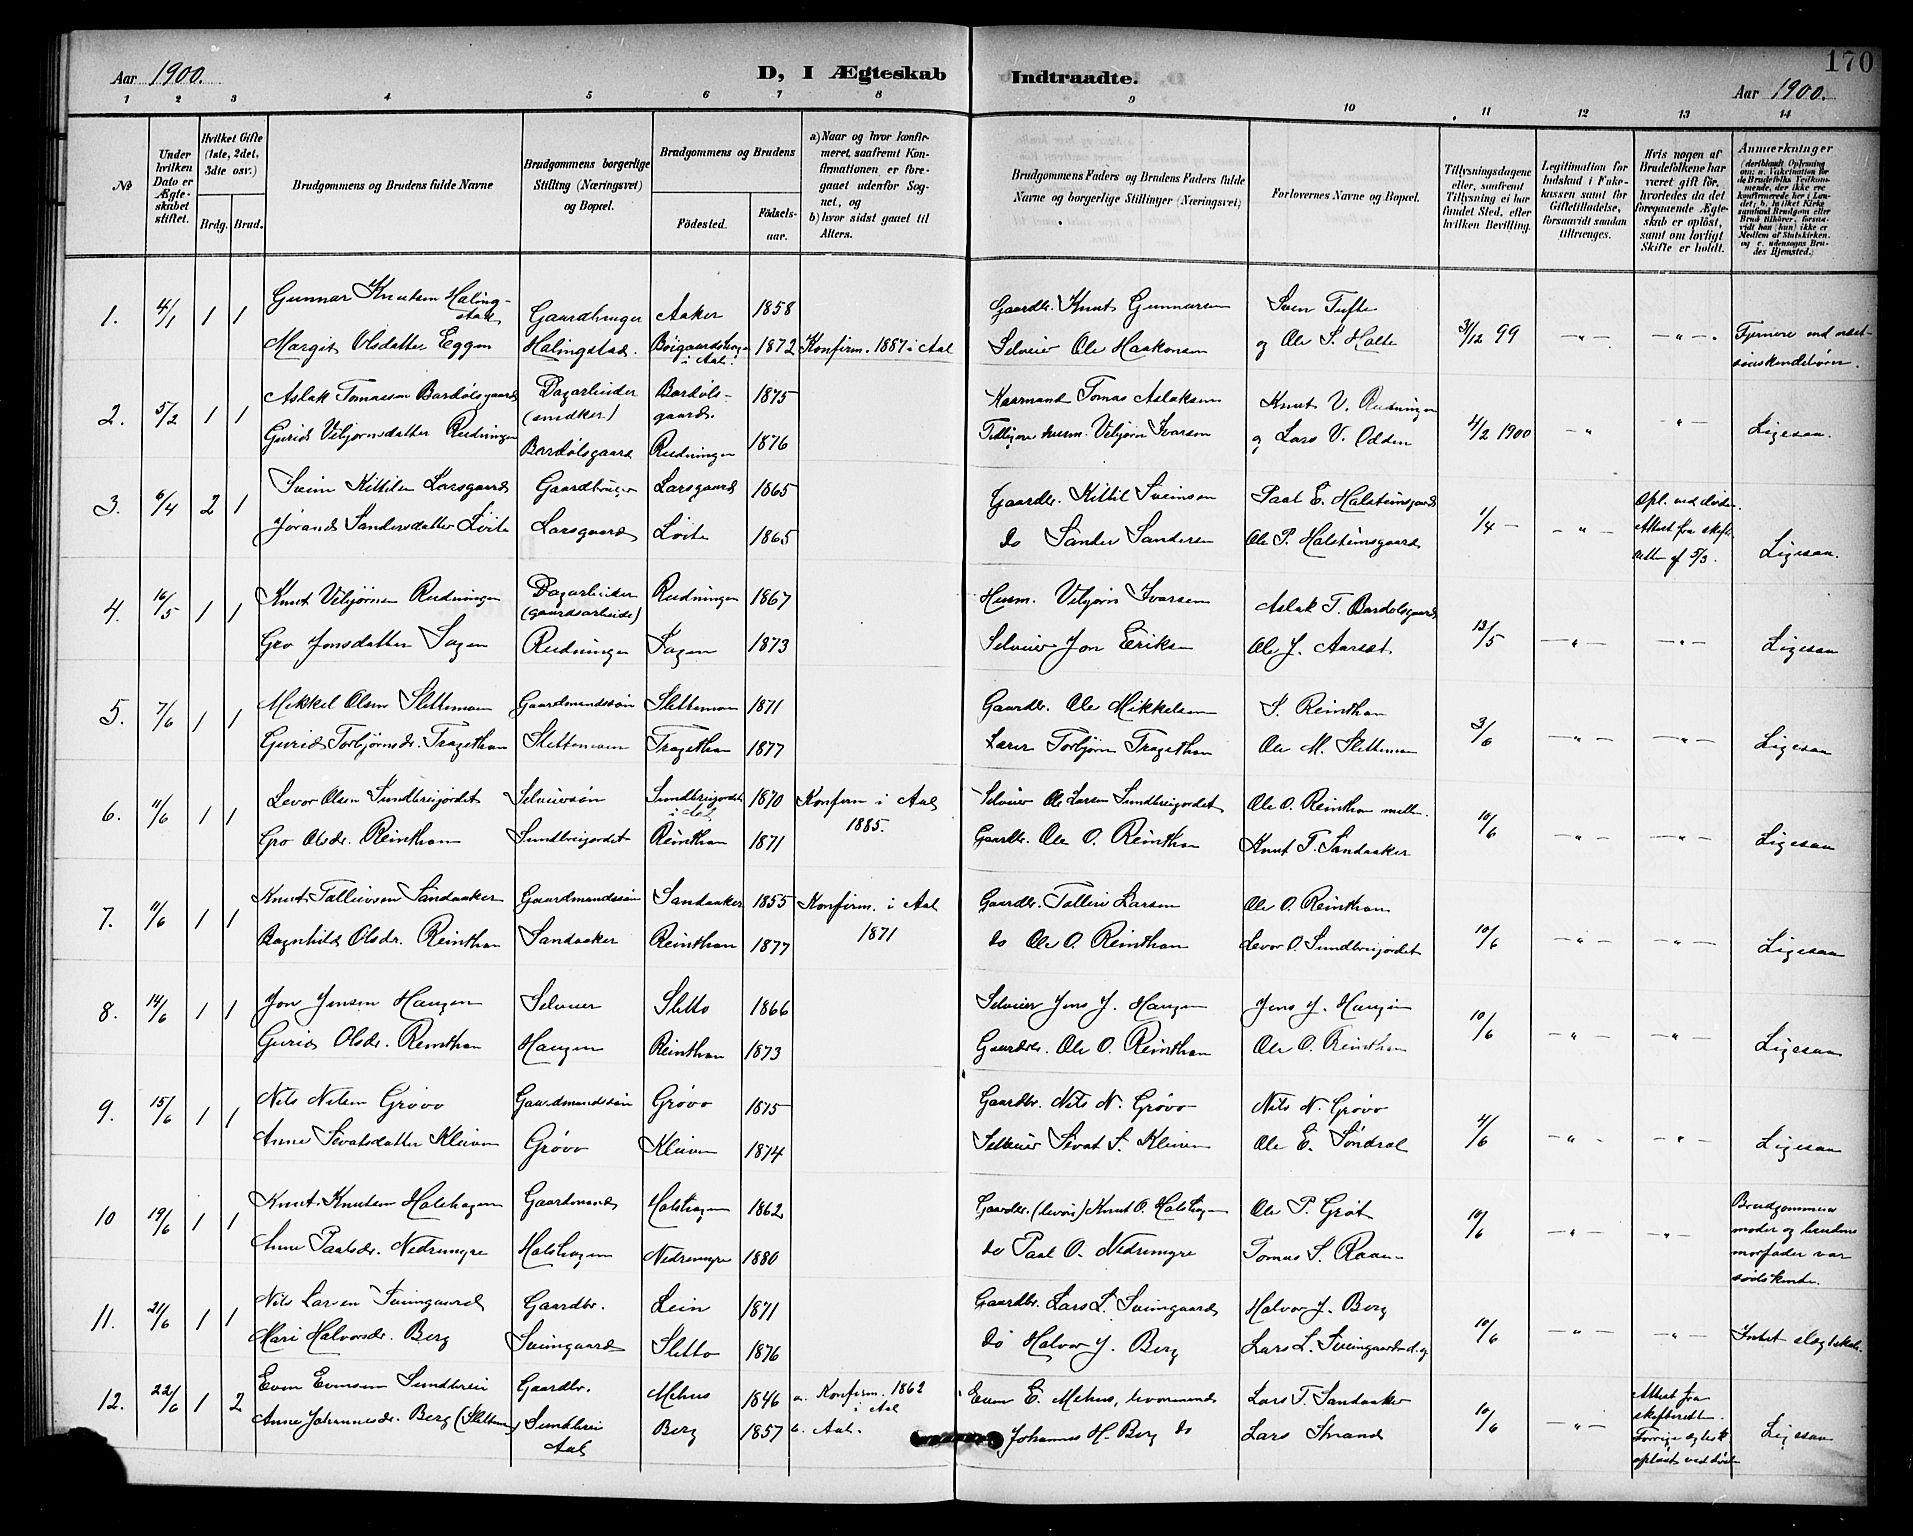 170
Aar 1900.
D, I Ægteskab Indtraadte.
Aar 1900.
1 2 3 4 5 6 7 8 9 10 11 12 13 14
№
Under hvilken Dato er Ægteskabet stiftet.
Hvilket Gifte (1ste, 2det, 3die osv.)
Brdg. Brud.
Brudgommens og Brudens fulde Navne
Brudgommens borgerlige Stilling (Næringsvei) og Bopæl.
Brudgommens og Brudens
Fødested.
Fødselsaar.
a) Naar og hvor konfirmeret, saafremt Konfirmationen er foregaaet udenfor Sognet, og
b) hvor sidst gaaet til Alters.
Brudgommens Faders og Brudens Faders fulde Navne og borgerlige Stillinger (Næringsvei)
Forlovernes Navne og Bopæl.
Tillysningsdagene eller, saafremt Tillysning ei har fundet Sted, efter hvilken Bevilling.
Legitimation for Indskud i Enkekassen samt for Giftetilladelse, forsaavidt saadan tiltrænges.
Hvis nogen af Brudefolkene har været gift før, hvorledes da det foregaaende Ægteskab er opløst, samt om lovligt Skifte er holdt.
Anmærkninger
1. 4/1 1 1 Gunnar Knutsen Halingstad Gaardbruger Aaker 1858 Gaardbr. Knut Gunnarsen Sven Tufte
Margit Olsdatter Eggen Halingstad. Böigaardshagen i Aal. 1872 Konfirm. 1887 i Aal Selveier Ole Haakonsen og Ole S. Halte 31/12 99 — " — — " — Fjernere end næstsøskendebørn.
2. 5/2 1 1 Aslak Tomassen Bardølsgaard Dagarbeider (snedker) Bardølsgaard. 1875 Kaarmand Tomas Aslaksen Knut V. Rudningen
Gurid Vebjørnsdatter Rudningen Bardølsgaard Rudningen 1876 Tidligere husm. Vebjørn Ivarsen og Lars V. Odden 4/2 1900 — " " — Ligesaa.
3. 6/4 2 1 Svein Kittilsen Larsgaard Gaardbruger Larsgaard 1865 Gaardbr. Kittil Sveinsen Paal E. Halsteinsgaard Opl. ved døden.
Jørand Sandersdatter Løite Larsgaard Løite 1865 do Sander Sandersen Ole P. Halsteinsgaard 1/4 — — " — Attest fra skifteretten af 5/3. Ligesaa.
4. 16/5 1 1 Knut Vebjørnsen Rudningen Dagarbeider (gaardsarbeide) Rudningen 1867 Husm. Vebjørn Ivarsen Aslak T. Bardølsgaard
Gro Jonsdatter Sagen Rudningen Sagen 1873 Selveier Jon Eriksen Ole J. Aarset 13/5 — " — — " — Ligesaa
5. 7/6 1 1 Mikkel Olsen Slettemoen Gaardmandssøn Slettemoen 1871 Gaardbr. Ole Mikkelsen S. Reinthan
Gurid Torbjørnsdr. Tragethon Slettemoen Tragethon 1877 Lærer Torbjørn Tragethon Ole M. Slettemoen 3/6 — " — — " — Ligesaa
6. 11/6 1 1 Levor Olsen Sundbreijordet Selveiersøn Sundbreijordet i Aal. 1870 Konfirm i Aal 1885. Selveier Ole Larsen Sundbreijordet Ole O. Reinthan mellem.
Gro Olsdr. Reinthan Sundbreijordet Reinthan 1871 Gaardbr. Ole O. Reinthan Knut T. Sandaaker 10/6 — " — — " — Ligesaa
7. 11/6 1 1 Knut Talleivsen Sandaaker Gaardmandssøn Sandaaker 1855 Konfirm. i Aal 1871 Gaardbr. Talleiv Larsen Ole O. Reinthan
Ragnhild Olsdr. Reinthan Sandaaker Reinthan 1877 do Ole O. Reinthan Levor O. Sundbreijordet 10/6 — " — — " — Ligesaa
8. 14/6 1 1 Jon Jensen Haugen Selveier Sletto 1866 Selveier Jens J. Haugen Jens J. Haugen
Gurid Olsdr. Reinthan Haugen Reinthan 1873 Gaardbr. Ole O. Reinthan Ole O. Reinthan 10/6 — " — — " — Ligesaa
9. 15/6 1 1 Nils Nilsen Grøvo Gaardmandssøn Grøvo 1875 Gaardbr. Nils N. Grøvo Nils N. Grøvo
Anne Sevatsdatter Kleiven Grøvo Kleiven 1874 Selveier Sevat S. Kleiven Ole E. Søndral 4/6 — " — — " — Ligesaa
10 19/6 1 1 Knut Knutsen Halshagen Gaardmand Halshagen 1862 Gaardbr. Knut O. Halshagen Ole P. Grøt Brudgommens
Anne Paalsdr. Nedremyre Halshagen Nedremyre 1880 do Paal O. Nedremyre Tomas S. Raaen 10/6 — " — — " — moder og brudens morfader var sødskende.
11. 21/6 1 1 Nils Larsen Sveingaard Gaardbr. Lein 1871 Gaardbr. Lars L. Sveingaard Halvor J. Berg
Mari Halvorsdr. Berg Sveingaard Sletto 1876 do Halvor J. Berg Lars L. Sveingaard 10/6 — " — — " — Intet slegtskab.
12. 22/6 1 2 Even Evensen Sundbrei Gaardbr. Mehus 1846 a. Konfirm. 1862 i Aal Even E. Mehus, Lars T. Sandaaker Attest fra skifteretten.
Anne Johannesdr. Berg (Slettemoen) Sundbrei Aal Berg 1857 b. Aal. Johannes H. Berg do Lars Strand 10/6 — " — Forrige ægtesk. opløst ved død Ligesaa